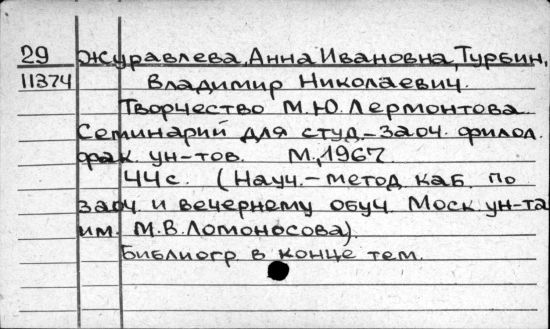 29 Журавлева, Анна Ивановна, Турбин,
11374 Владимир Николаевич.
Творчество М.Ю. Лермонтова.
Семинарий для студ.-заоч. филол.
фак. ун-тов. М., 1967.
44 с. (Науч.-метод. каб. по
заоч. и вечернему обуч. Моск. ун-та
им. М.В. Ломоносова).
Библиогр в конце тем.